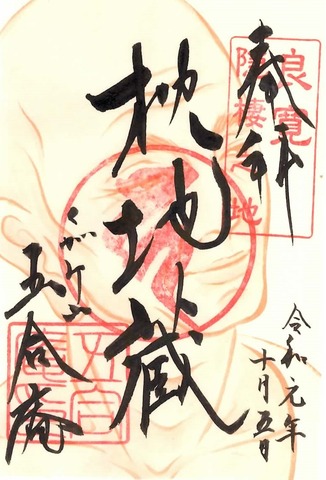 奉拝
良寛
隠棲 地
枕地蔵
くがみ山
五合庵
令和元年
十月五日